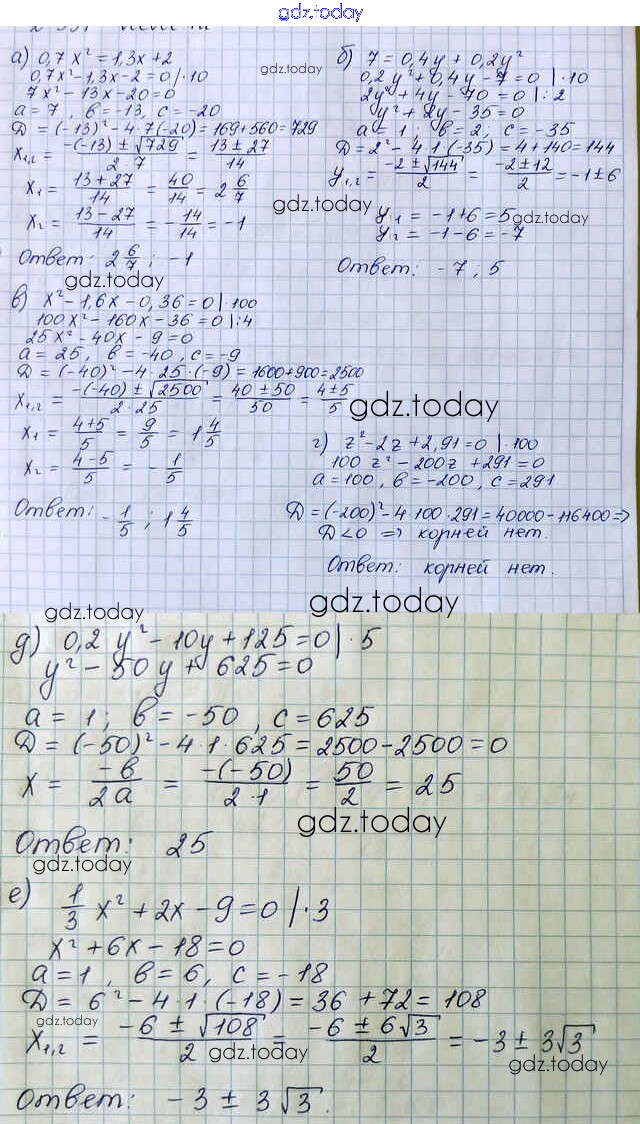 gdz.today
а) 0,7x² = 1,3x + 2
0,7x² - 1,3x - 2 = 0 | · 10
7x² - 13x - 20 = 0
a = 7, в = -13, c = -20
D = (-13)² - 4 · 7(-20) = 169 + 560 = 729
x₁,₂ = (-(-13) ± √729) / (2 · 7) = (13 ± 27) / 14
x₁ = (13 + 27) / 14 = 40/14 = 2 6/7
x₂ = (13 - 27) / 14 = -14/14 = -1
Ответ: 2 6/7; -1
б) 7 = 0,4y + 0,2y²
0,2y² + 0,4y - 7 = 0 | · 10
2y² + 4y - 70 = 0 | : 2
y² + 2y - 35 = 0
a = 1; в = 2; c = -35
D = 2² - 4 · 1 · (-35) = 4 + 140 = 144
y₁,₂ = (-2 ± √144) / 2 = (-2 ± 12) / 2 = -1 ± 6
y₁ = -1 + 6 = 5
y₂ = -1 - 6 = -7
Ответ: -7; 5
в) x² - 1,6x - 0,36 = 0 | · 100
100x² - 160x - 36 = 0 | : 4
25x² - 40x - 9 = 0
a = 25, в = -40, c = -9
D = (-40)² - 4 · 25 · (-9) = 1600 + 900 = 2500
x₁,₂ = (-(-40) ± √2500) / (2 · 25) = (40 ± 50) / 50 = (4 ± 5) / 5
x₁ = (4 + 5) / 5 = 9/5 = 1 4/5
x₂ = (4 - 5) / 5 = -1/5
Ответ: -1/5; 1 4/5
г) z² - 2z + 2,91 = 0 | · 100
100z² - 200z + 291 = 0
a = 100, в = -200, c = 291
D = (-200)² - 4 · 100 · 291 = 40000 - 116400 ⇒
D < 0 ⇒ корней нет.
Ответ: корней нет.
gdz.today
gdz.today
gdz.today
gdz.today
gdz.today
gdz.today
gdz.today
gdz.today
д) 0,2y² - 10y + 125 = 0 | · 5
y² - 50y + 625 = 0
a = 1; в = -50, c = 625
D = (-50)² - 4 · 1 · 625 = 2500 - 2500 = 0
x = -в / 2a = -(-50) / (2 · 1) = 50/2 = 25
gdz.today
Ответ: 25
gdz.today
е) 1/3 x² + 2x - 9 = 0 | · 3
x² + 6x - 18 = 0
a = 1, в = 6, c = -18
D = 6² - 4 · 1 · (-18) = 36 + 72 = 108
gdz.today
x₁,₂ = (-6 ± √108) / 2 = (-6 ± 6√3) / 2 = -3 ± 3√3
gdz.today
gdz.today
Ответ: -3 ± 3√3.